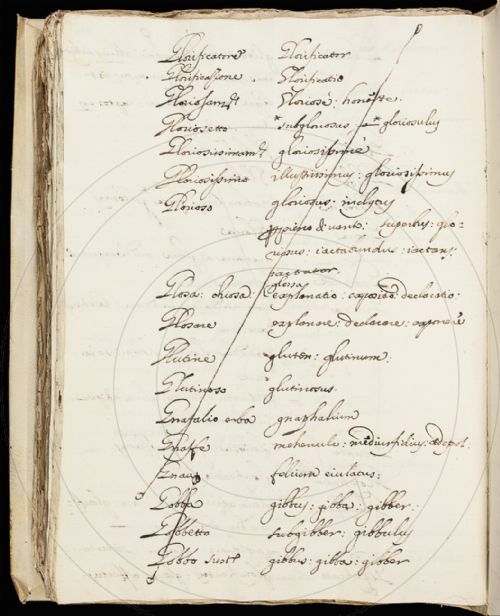 Glorificatore Glorificator
Glorificasione Glorificatio
Gloriosam.te Gloriosè: honestè.
Gloriosetto *subgloriosus *gloriosulus
Gloriosissimam.te gloriosissimè
Gloriosissimo illustrissimus: gloriosissimus
Glorioso gloriosus: inclytus
superbus: glo-
riosus: iactabundus: iactans:
Glosa: chiosa. glossa explanatio: expositio declaratio:
Glosare explanare: declarare: exponere
Glutine gluten: glutinum:
Glutinoso glutinosus.
Gnafalio erba gnaphalium
Gnaffe
folium
Gobba gibbus: gibba: gibber.
Gobbetto subgibber: gibbulus
Gobbo sust.o gibbus: gibba: gibber